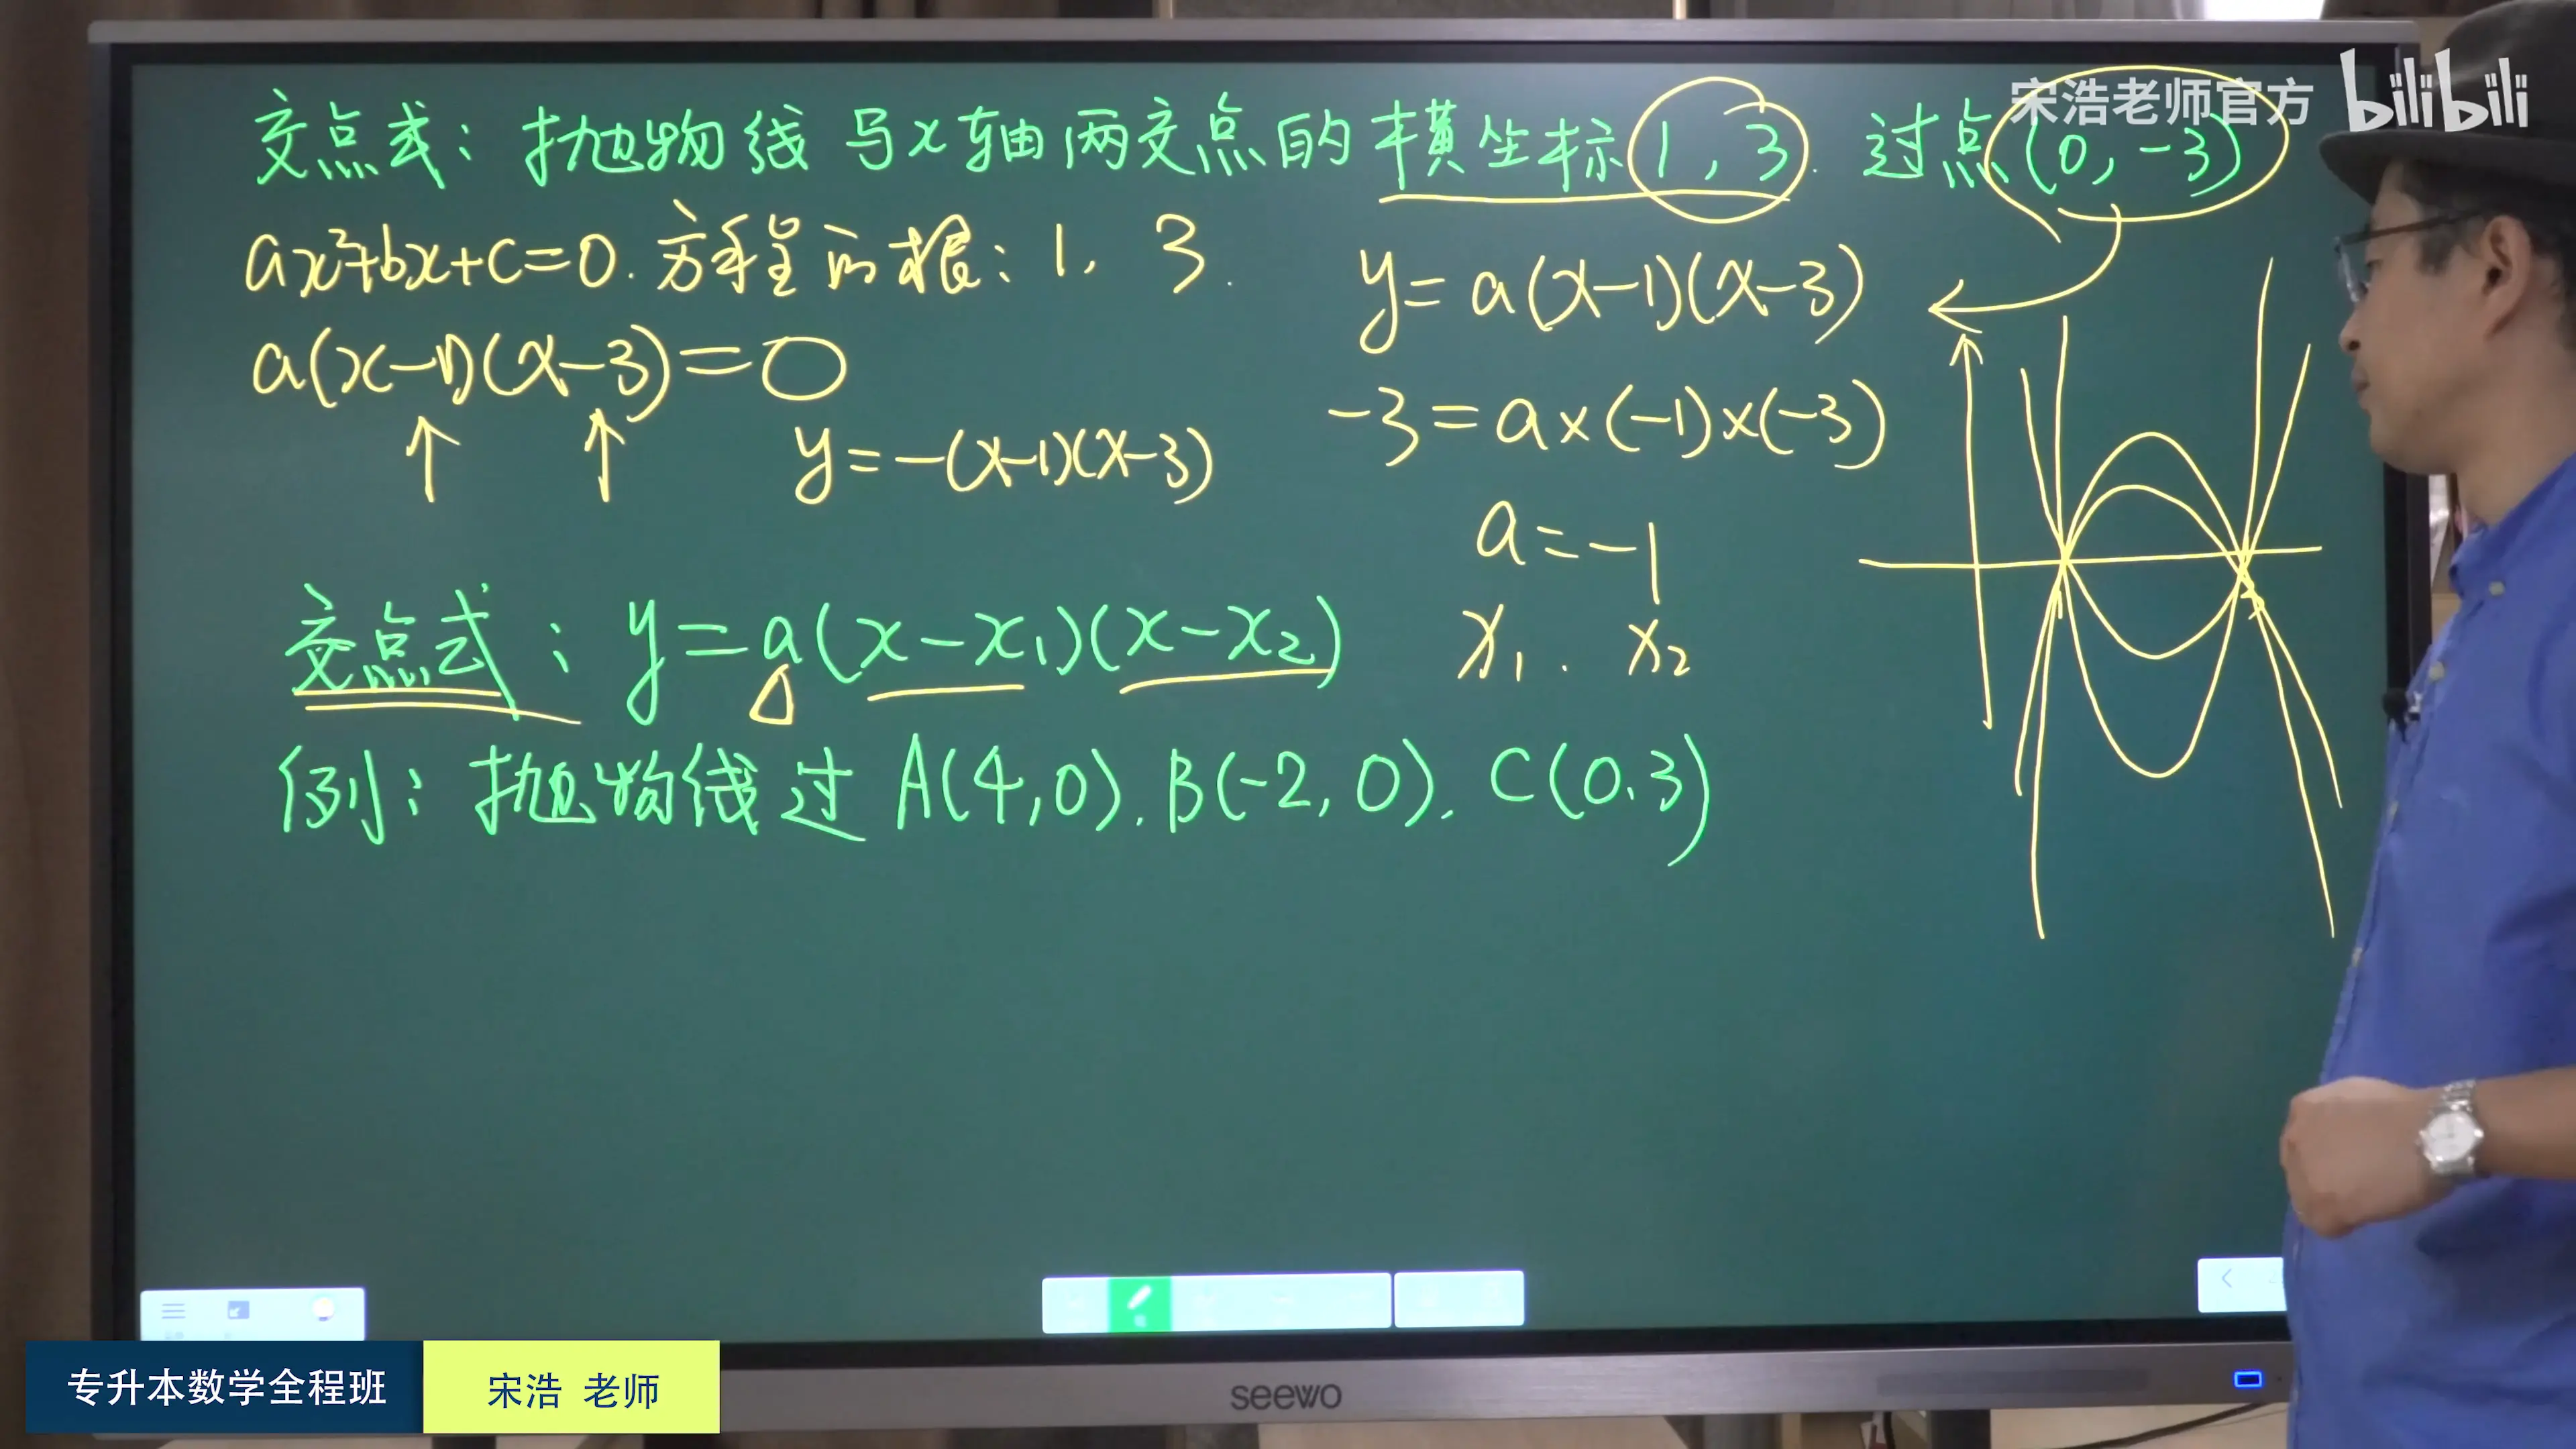 宋浩老师官方 bilibili
交点式：抛物线与x轴两交点的横坐标1，3．过点(0，-3)
ax²+bx+c=0．方程的根：1，3．
y=a(x-1)(x-3)
a(x-1)(x-3)=0
-3=a×(-1)×(-3)
y=-(x-1)(x-3)
a=-1
交点式：y=a(x-x₁)(x-x₂)
x₁．x₂
例：抛物线过A(4,0)．B(-2,0)．C(0.3)
专升本数学全程班 宋浩 老师
seewo